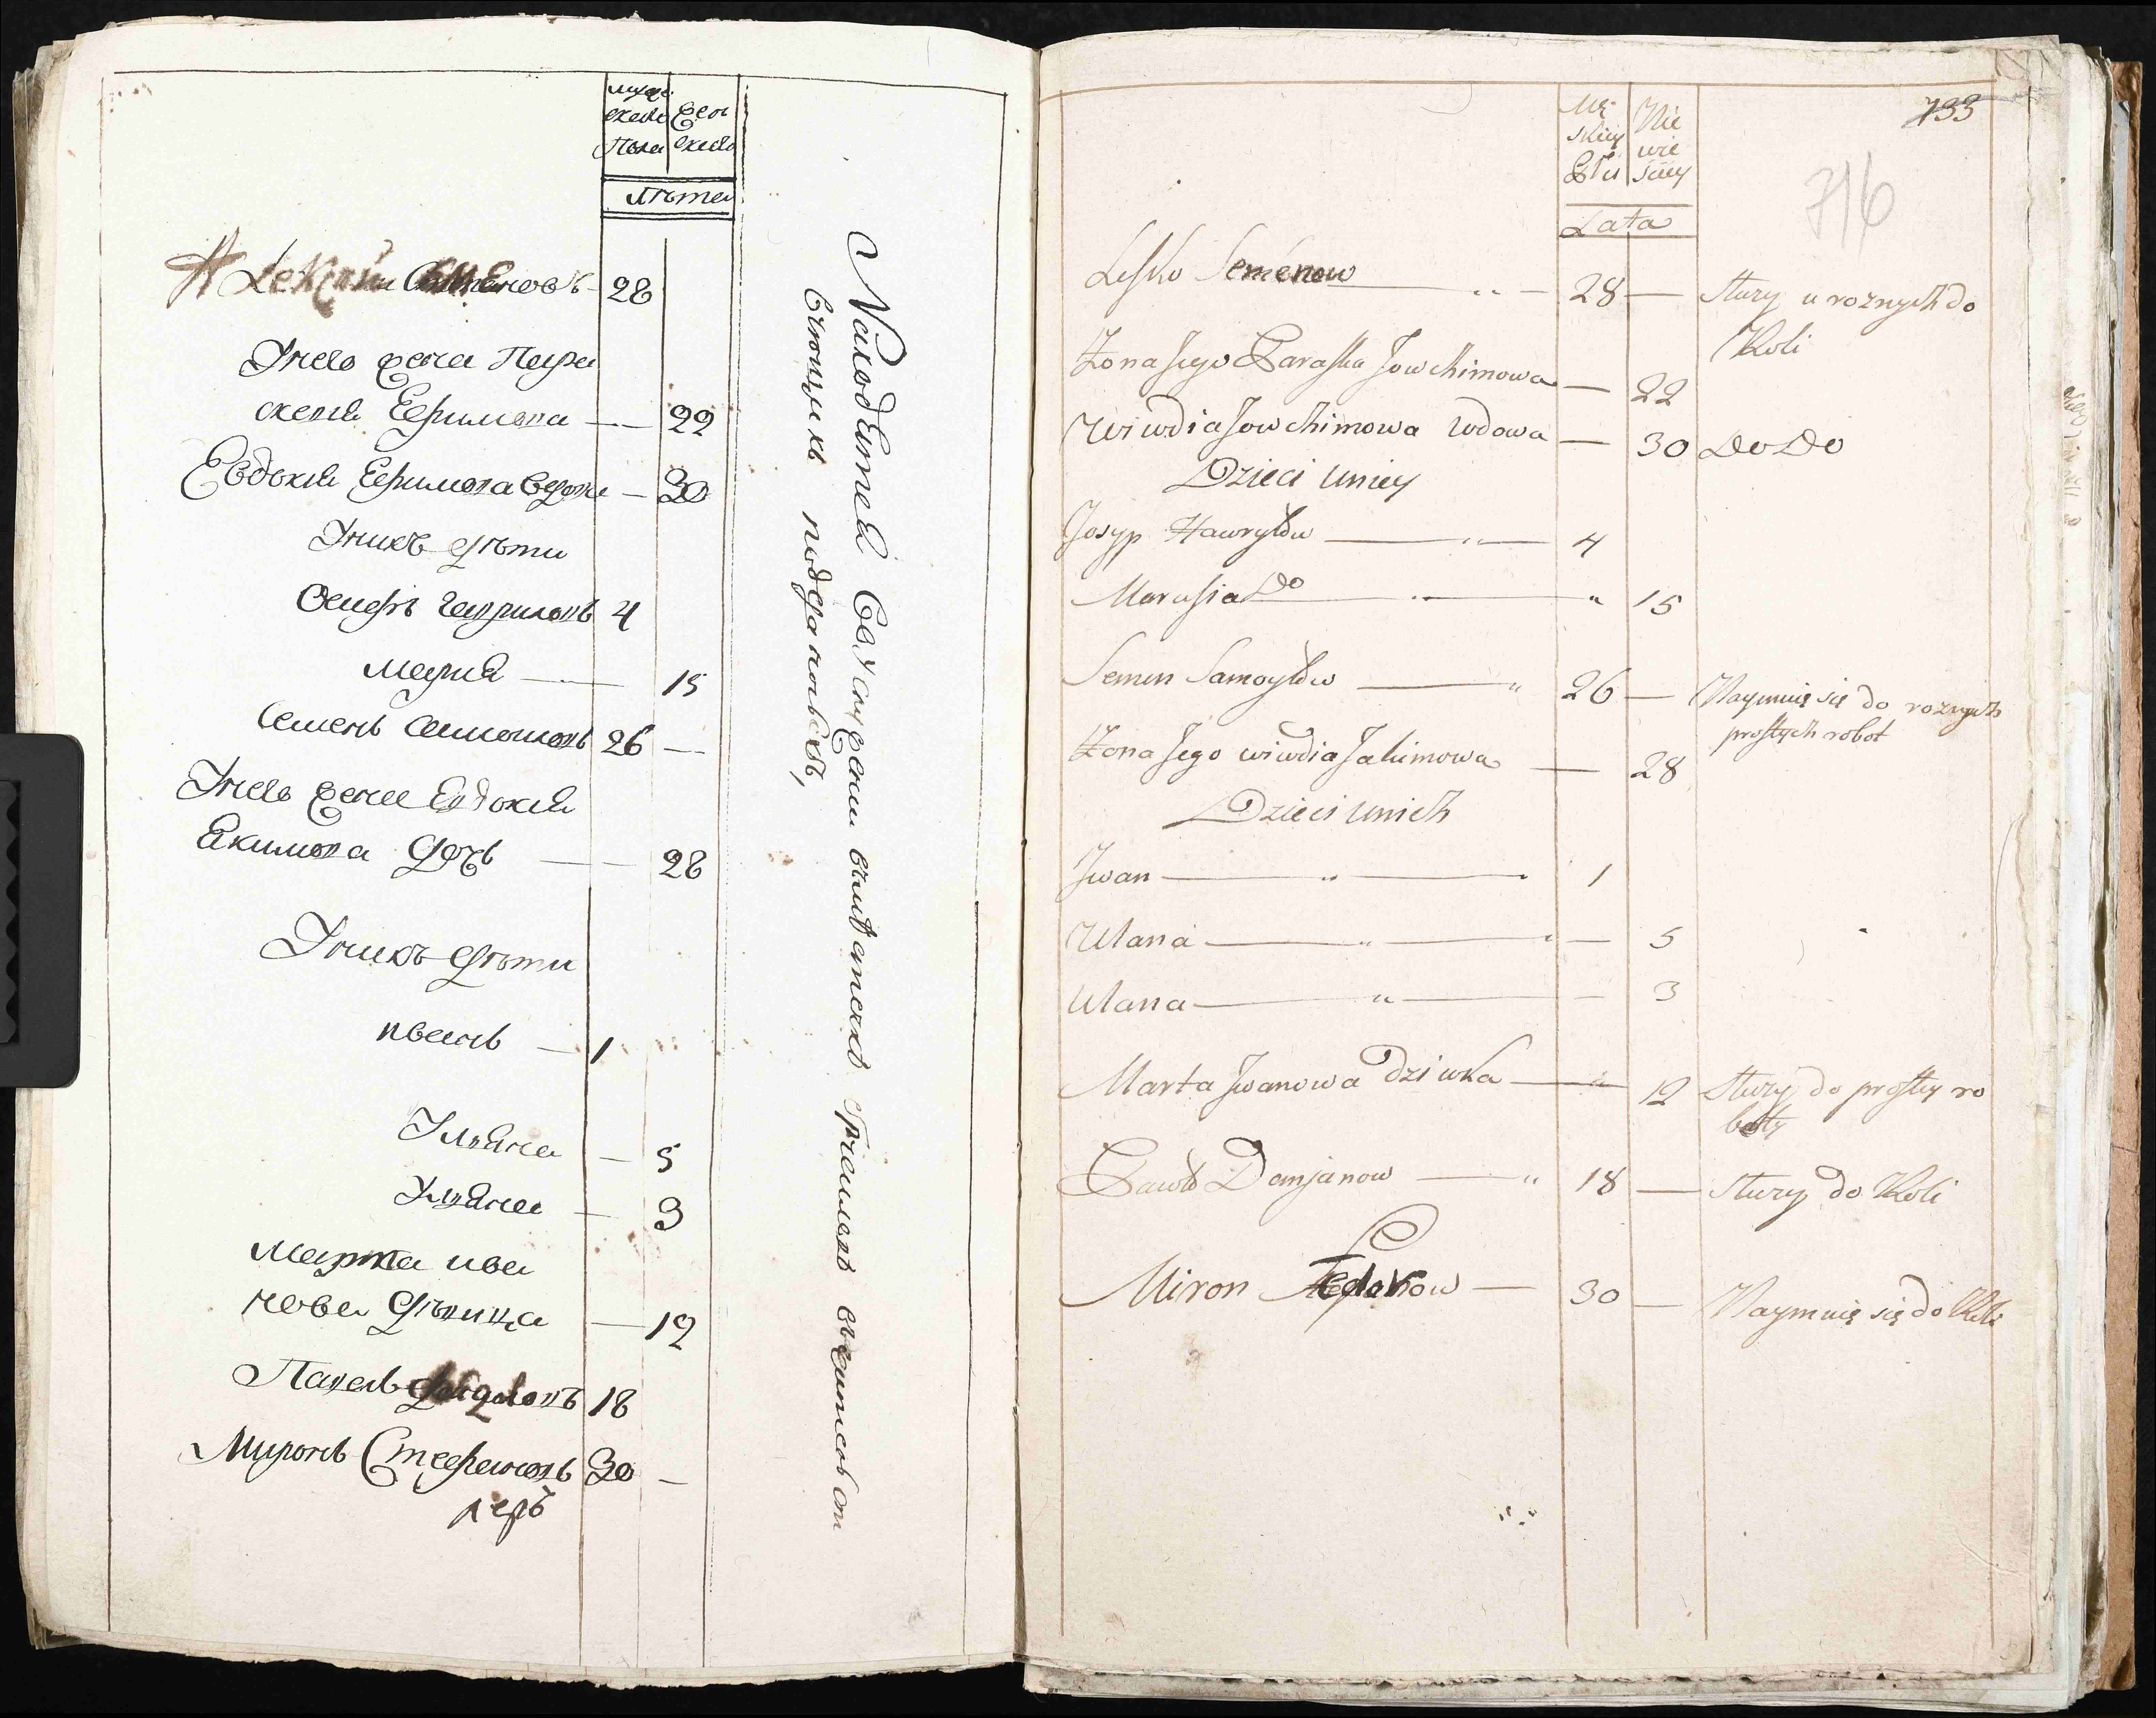 муже
ска
Пола
жен
ска
лѣта
Алексѣй Семеновъ 28
Унево жена Пара
скевия Ефимова — 22
Евдокия Ефимова вдова — 30
Унихъ дѣти
Осифъ Гавриловъ 4
мария — 15
Семенъ Самойловъ 26 —
Унево жена Евдокия
Якимова дочь — 28
Унихъ дѣти
иванъ — 1
Ульяна — 5
Ульяна — 3
марта ива
нова дѣвица — 12
Павелъ 18
Миронъ Стефановъ 30 —
Находятся в услужении
подданныхъ,
Mę
skiey
Płci
Nie
wie
sciey
Lata
133
716
Lesko Semenow — 28 — Słuzy u roznych do
Koli
Zona Jego Paraska Jowchimowa — 22
Wiwdia Jowchimowa wdowa — 30 Do Do
Dzieci uniey
Josyp Hawryłow — " — 4
Marusia Do — " 15
Semen Samoyłow — " 26 — Naymuię się do roznych
prostych robot
Zona Jego wiwdia Jakimowa — 28
Dzieci unich
Jwan — " — 1
Ulana — " — 5
Ulana — " — 3
Marta Jwanowa dziwka — " 12 Słuzy do prosty ro
boty
Pawło Demjanow — " 18 — Słuzy do Koli
Miron — 30 — Naymuię się do Koli